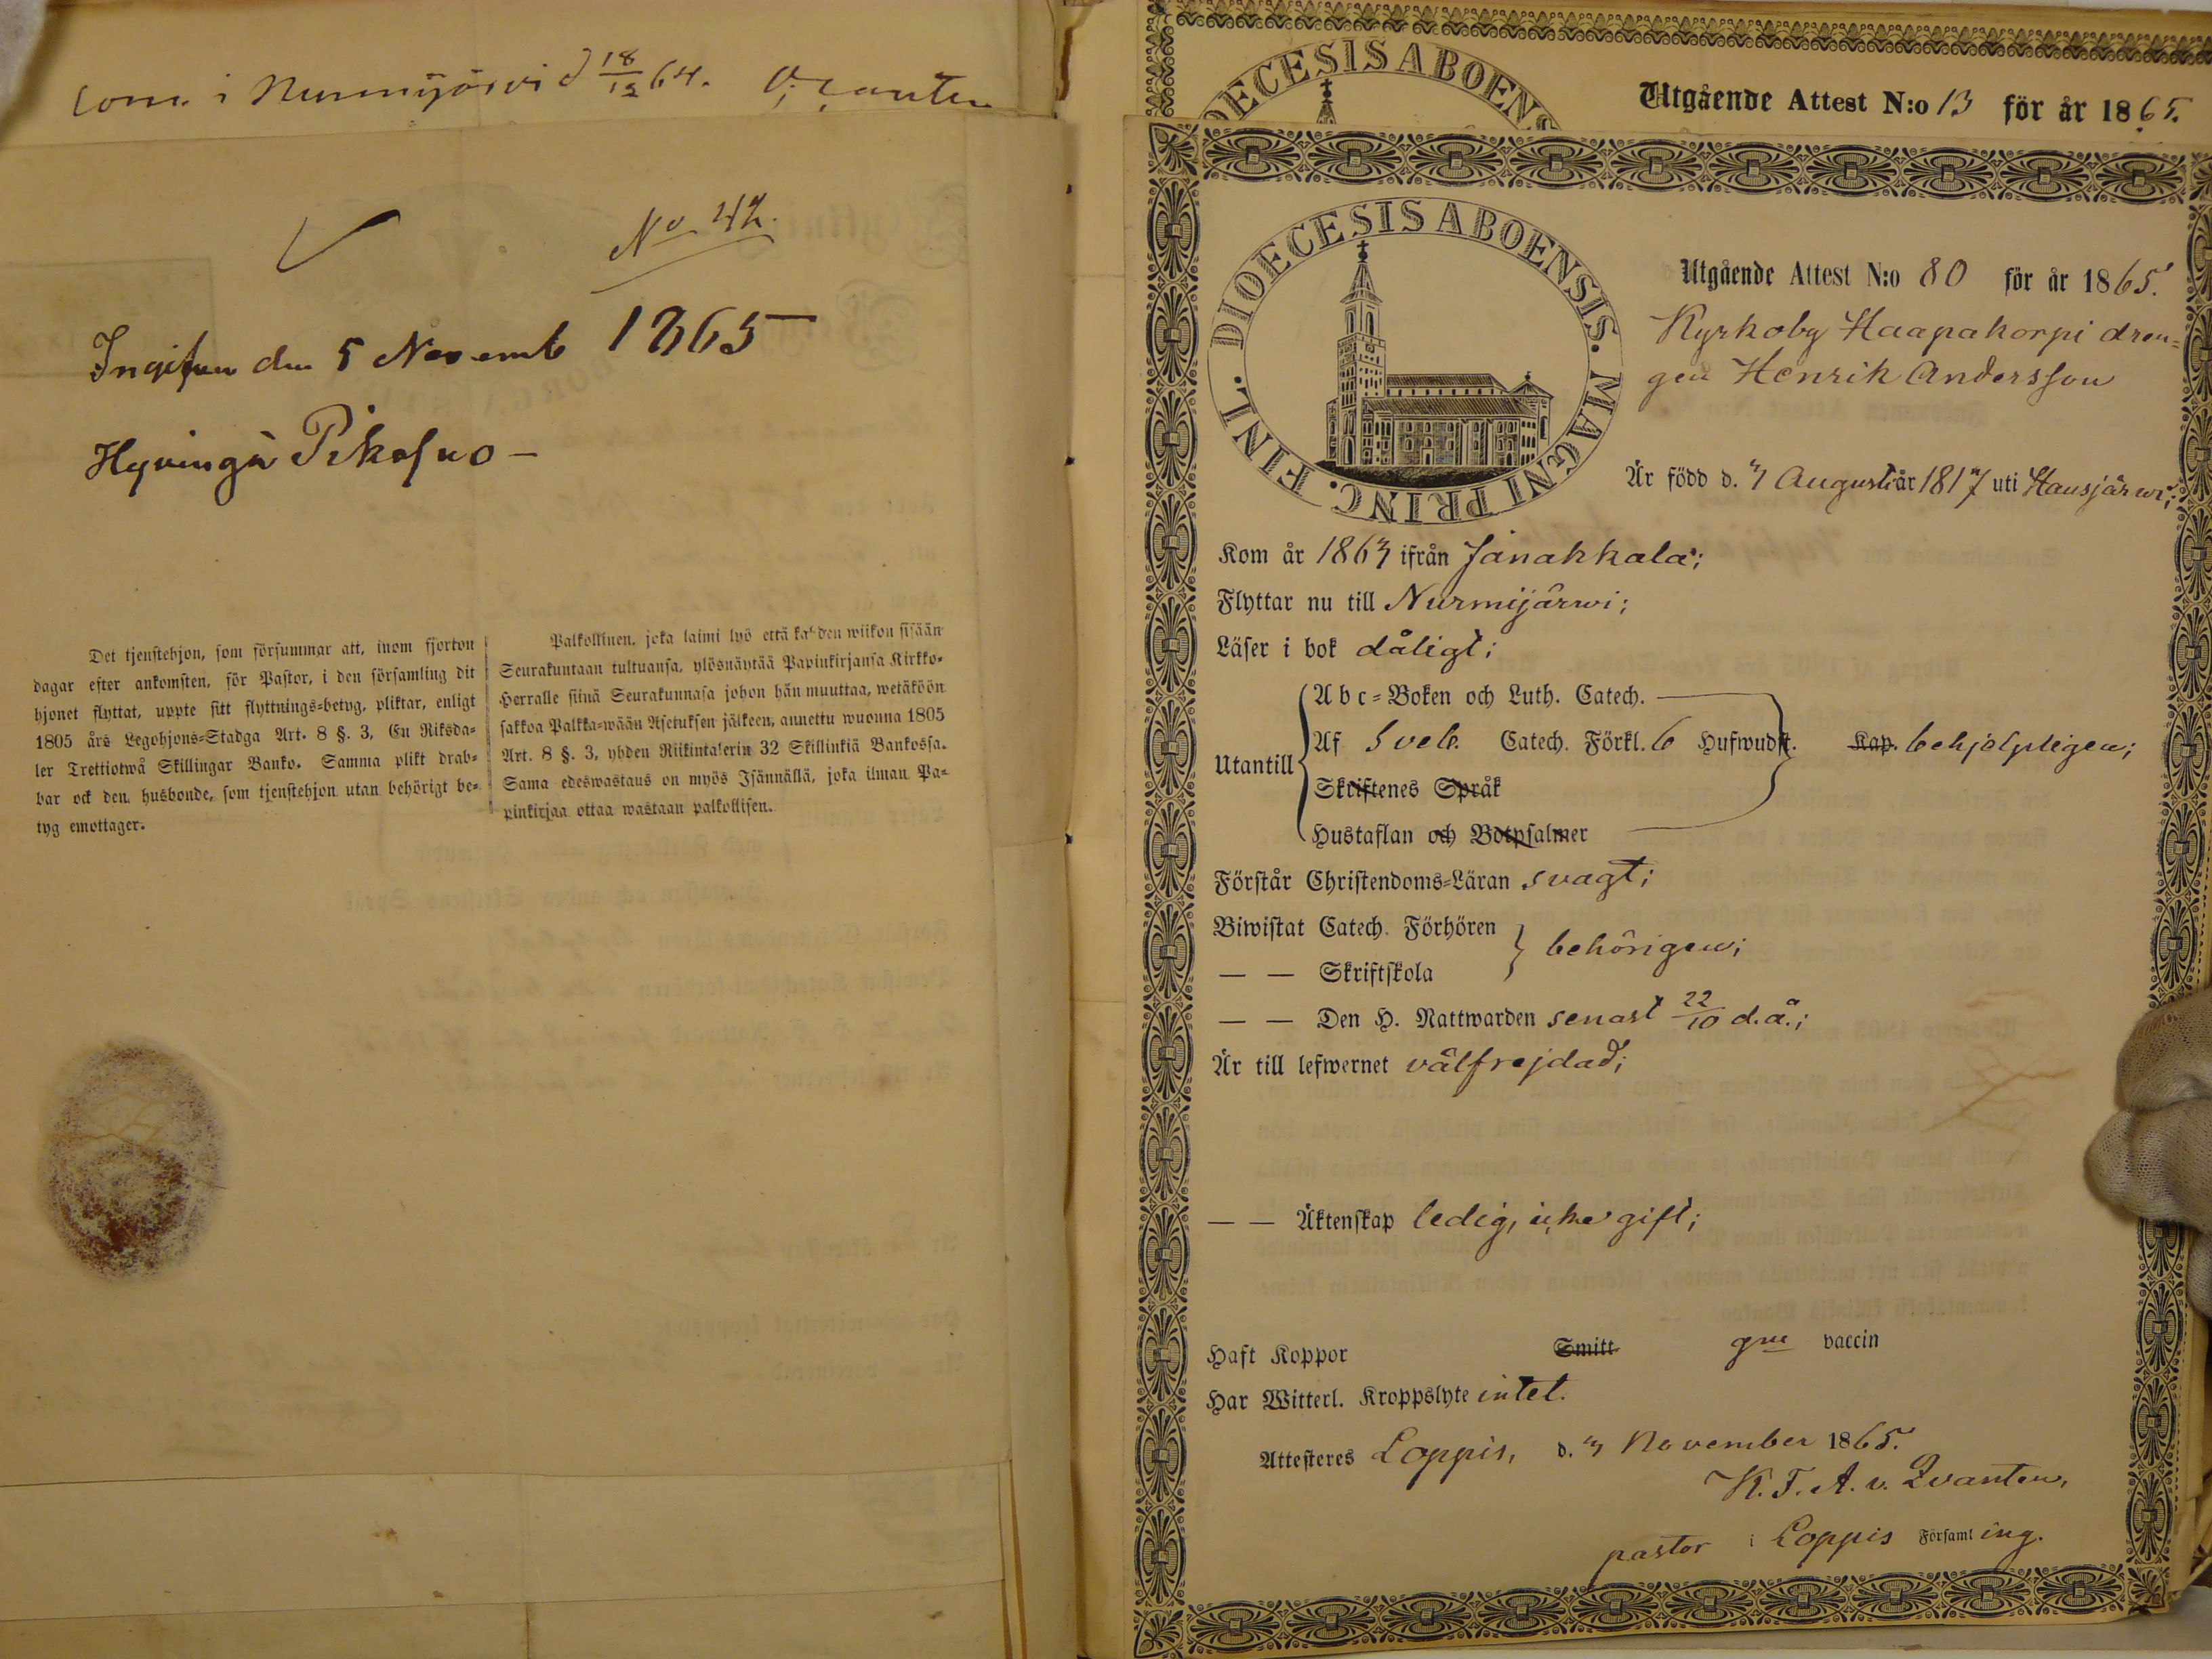 i Nurmijärvi d 18/12 64.
No 42.
Ingifven den 5 Novemb 1865
Hyvingä
Det tjenstehjon, som försummar att, inom fjorton
dagar efter ankomsten, för Pastor, i den församling dit
hjonet flyttat, uppte sitt flyttnings=betyg, pliktar, enligt
1805 års Legohjons=Stadga Art. 8 §. 3, En Riksda=
ler Trettiotwå Skillingar Banko. Samma plikt drab=
bar ock den husbonde, som tjenstehjon utan behörigt be=
tyg emottager.
Palkollinen, joka laimi lyö että kahden wiikon sisään
Seurakuntaan tultuansa, ylösnäyttää Papinkirjansa Kirkko=
Herralle siinä Seurakunnasa johon hän muuttaa, wetäköön
sakkoa Palkka=wään Asetuksen jälkeen, annettu wuonna 1805
Art. 8 §. 3, yhden Riikintalerin 32 Skillinkiä Bankossa.
Sama edeswastaus on myös Isännällä, joka ilman Pa=
pinkirjaa ottaa wastaan palkollisen.
DIOECESIS ABOENSIS
Utgående Attest N:o 13 för år 1865.
DIOECESIS ABOENSIS. MAGNI PRINC. FINL.
Utgående Attest N:o 80 för år 1865.
Kyrkoby Haapakorpi dren=
gen Henrik Andersson
Är född d. 7 Augusti år 1817 uti Hausjärwi;
Kom år 1863 ifrån Janakkala;
Flyttar nu till Nurmijärwi;
Läser i bok dåligt;
Utantill
Abc=Boken och Luth. Catech.
Af Sveb. Catech. Förkl. 6 Hufwudst. Kap. behjelpligen;
Skriftenes Språk
Hustaflan och Botpsalmer
Förstår Christendoms=Läran svagt;
Biwistat Catech. Förhören
— — Skriftskola
behörigen;
— — Den H. Nattwarden senast 22/10 d.å.;
Är till lefwernet välfrejdad;
— — Äktenskap ledig, icke gift;
Haft Koppor Smitt gm vaccin
Har Witterl. Kroppslyte intet.
Attesteres Loppis, d. 3 November 1865.
K. F. A. v. Qvanten,
pastor i Loppis Församling.